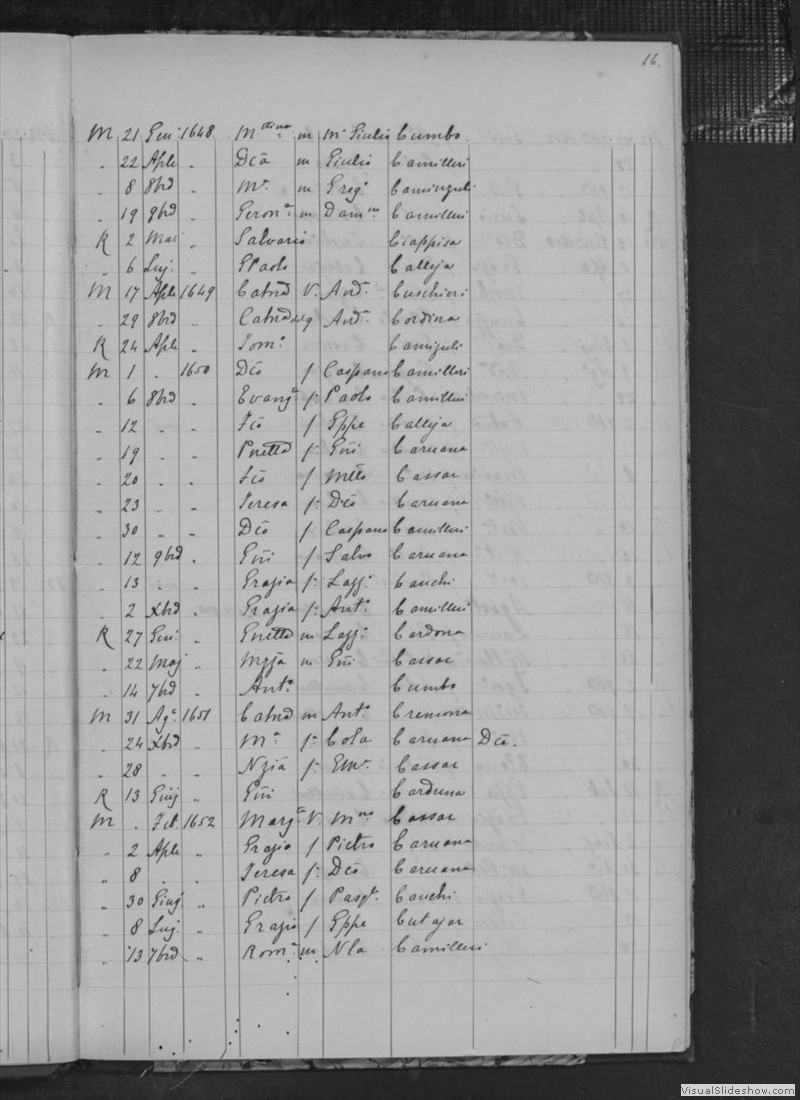 16.
M 21 Gen: 1648 Mttina m Mo Giulio Cumbo
" 22 Aple " Dca m Giulio Camilleri
" 8 8brd " Ma m Greg.o Caminguli
" 19 9brd " Geron.a m Dam.no Camilleri
R 2 Mai " Salvario Ciappisa
" 6 Lug. " GPaolo Calleja
M 17 Aple 1649 Catnd V. And.a Cuschieri
" 29 8brd " Catnd And.a Cordina
R 24 Aple " Tom.o Caminguli
M 1 " 1650 Dco f Gaspano Camilleri
" 6 8brd " Evang.a f. Paolo Camilleri
" 12 " " Fco f Gppe Calleja
" 19 " " Pnetta f. Gni Caruana
" 20 " " Fco f Mtto Cassar
" 23 " " Teresa f. Dco Caruana
" 30 " " Dco f. Gaspano Camilleri
" 12 9brd " Gni f Salvo Caruana
" 13 " " Grazia f. Lazz.o Cauchi
" 2 Xbrd " Grazia f. Ant.o Camilleri
R 27 Gen: " Gnetta m Lazz.o Cardona
" 22 Maj " Mzja m Gni Cassar
" 14 7brd " Ant.o Cumbo
M 31 Ag.o 1651 Catnd m Ant.o Cremona
" 24 Xbrd " M.a f. Cola Caruana Dca.
" 28 " " Nzia f. Cassar
R 13 Giug " Gni Carduna
M " Feb. 1652 Marg.a V. M.no Cassar
" 2 Aple " Grazio f Pietro Caruana
" 8 " " Teresa f. Dco Caruana
" 30 Giug " Pietro f Pasq.e Cauchi
" 8 Lug. " Grazio f Gppe Cutajar
" 13 7brd " Rom.a m Nla Camilleri
VisualSlideshow.com